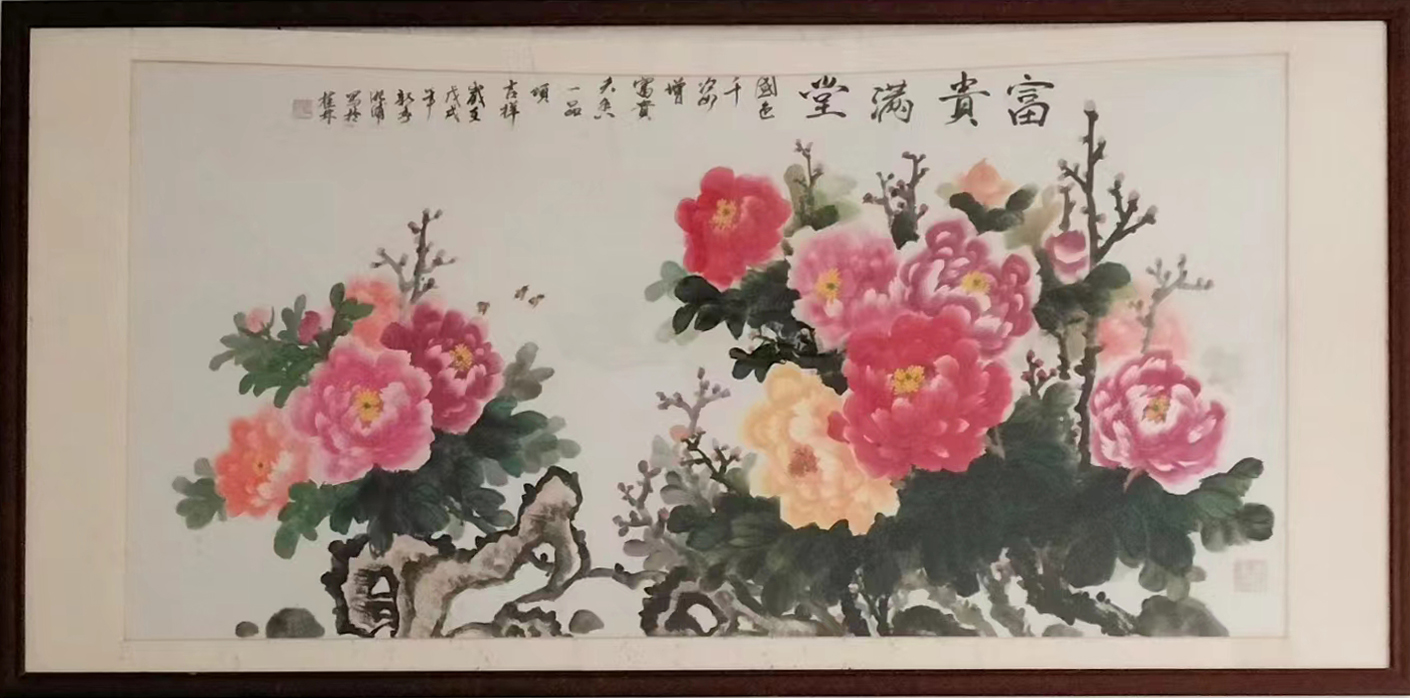 富貴滿堂
國色
千
姿
增
富貴
天香
一品
頌
吉祥
歲至
戊戌
年